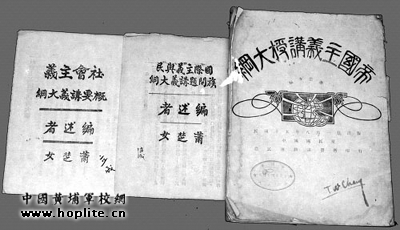 帝國主義講授大綱
國際主義與民
族問題講義大綱
編述者
蕭楚女
社會主義
概要講義大綱
編述者
蕭楚女
中國黃埔軍校網
www.hoplite.cn